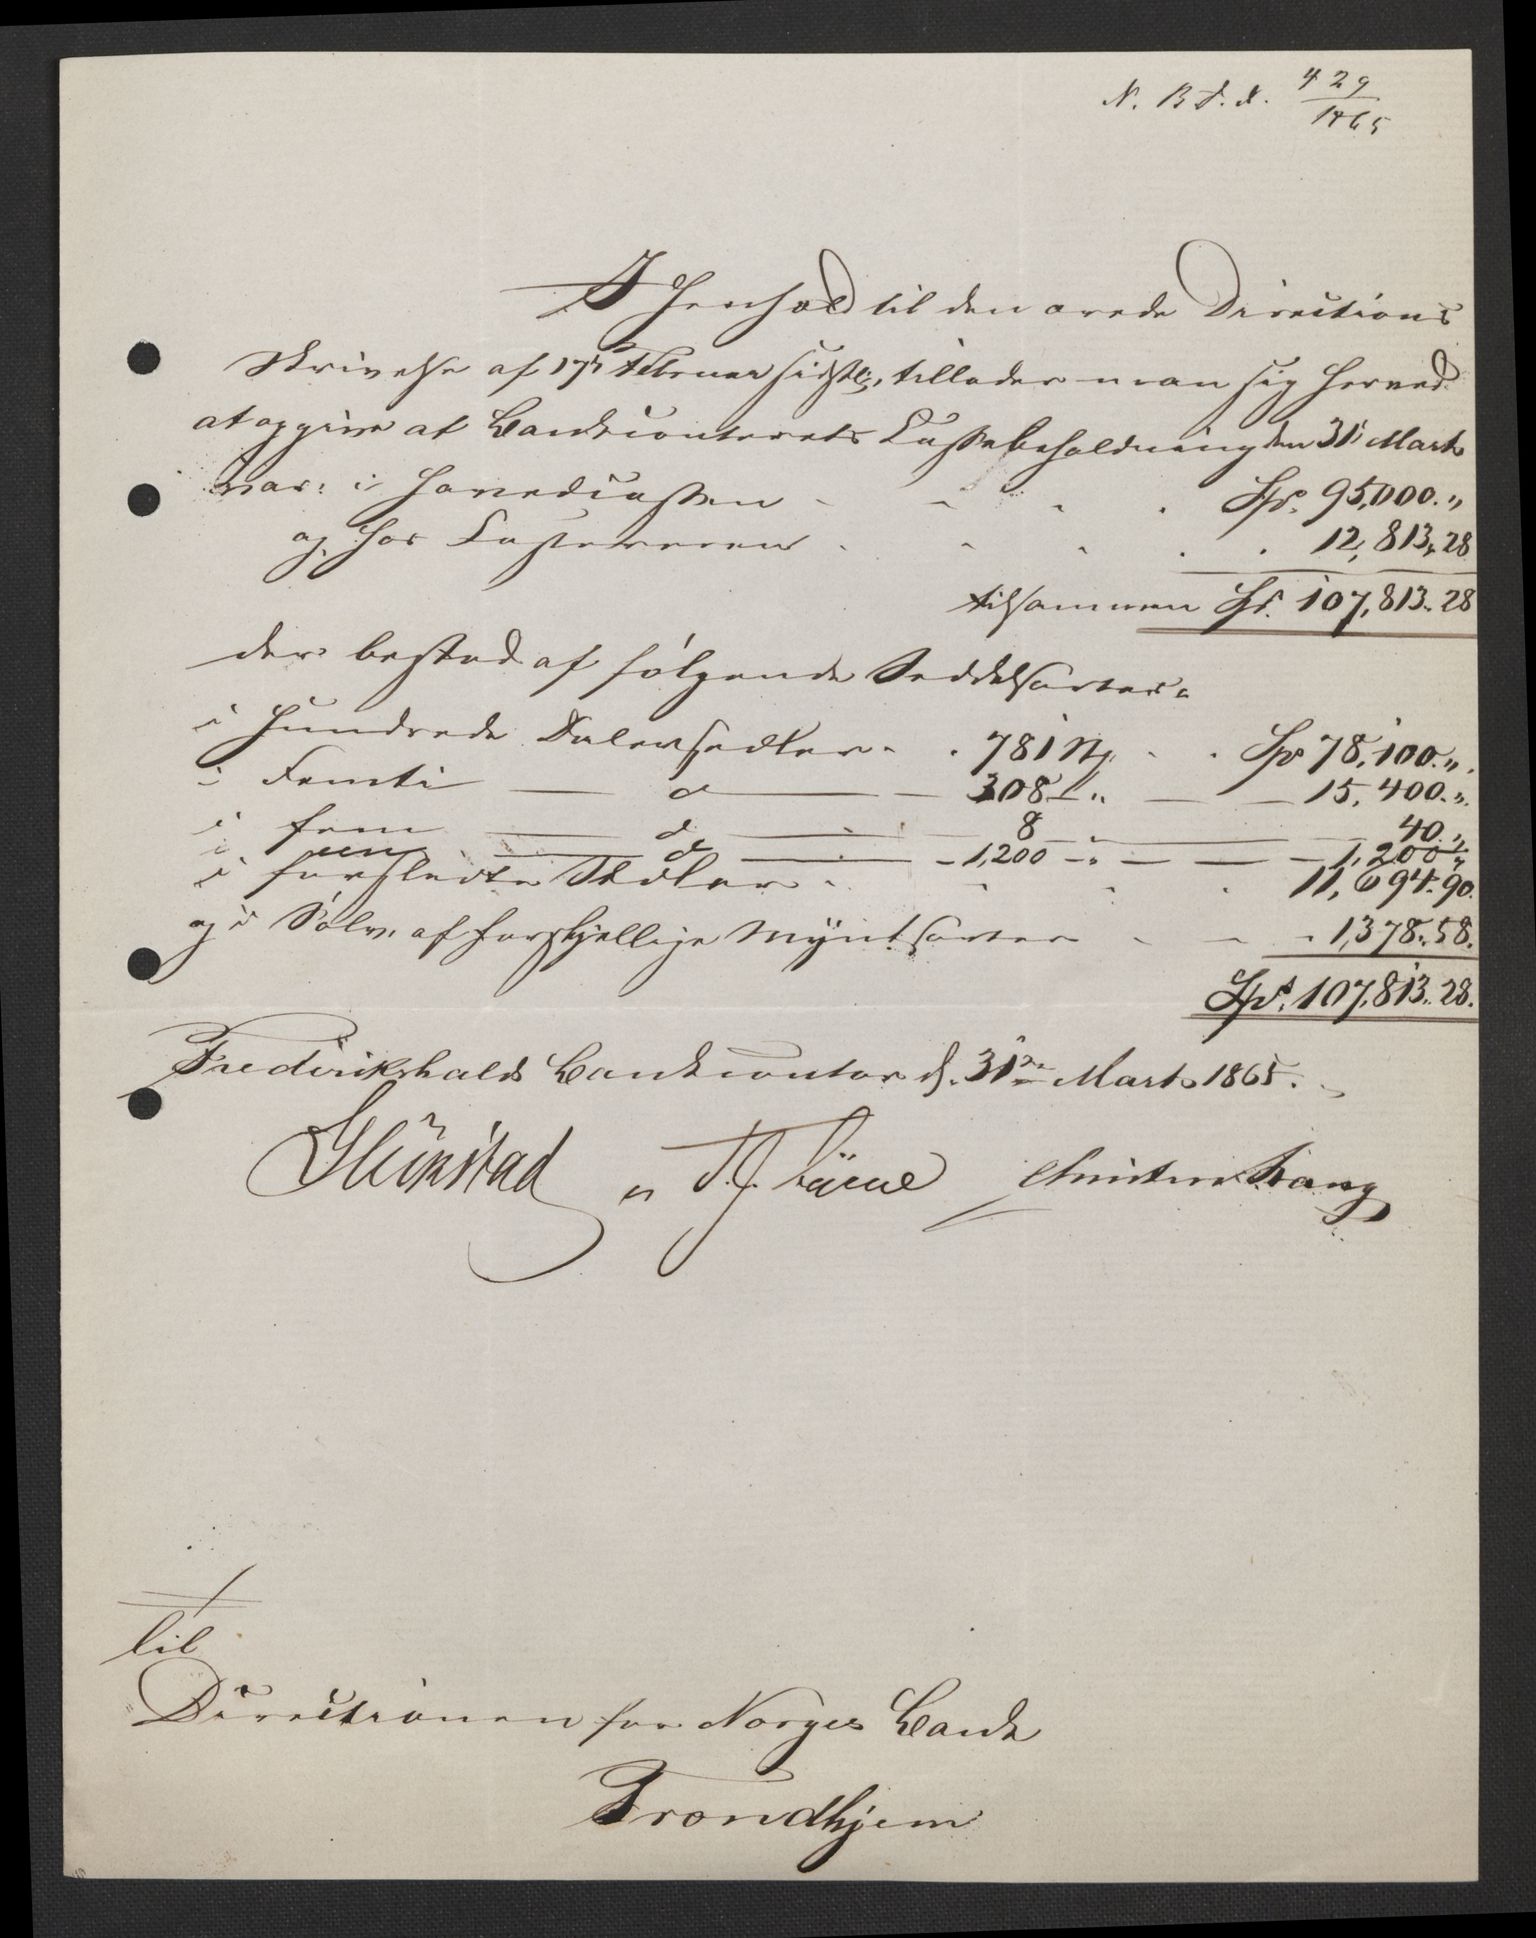 N. B. D. A. 429/1865
I Henhold til den ærede Directions
Skrivelse af 17de Februar sidstl:, tillader man sig herved
at opgive at Bankcontorets Cassebeholdning den 31te Marts
var: i Hovedcassen Spd. 95,000. "
og hos Cassereren 12,813. 28
tilsammen Spd. 107,813. 28
der bestod af følgende Seddelsorter:
i Hundrede Dalersedler 781 Spd 78,100. "
i Femti — do — 308 — " — 15,400. "
i fem — do — 8 — " — 40. "
i een — do — 1,200 — " — 1,200 "
i forslidte Sedler 11,694. 90.
og i Sølv af forskjellige Myntsorter 1,378. 58.
Spd. 107,813. 28.
Frederikshalds Bankcontor d. 31te Marts 1865.
Christian Stang
Til
Directionen for Norges Bank
Trondhjem